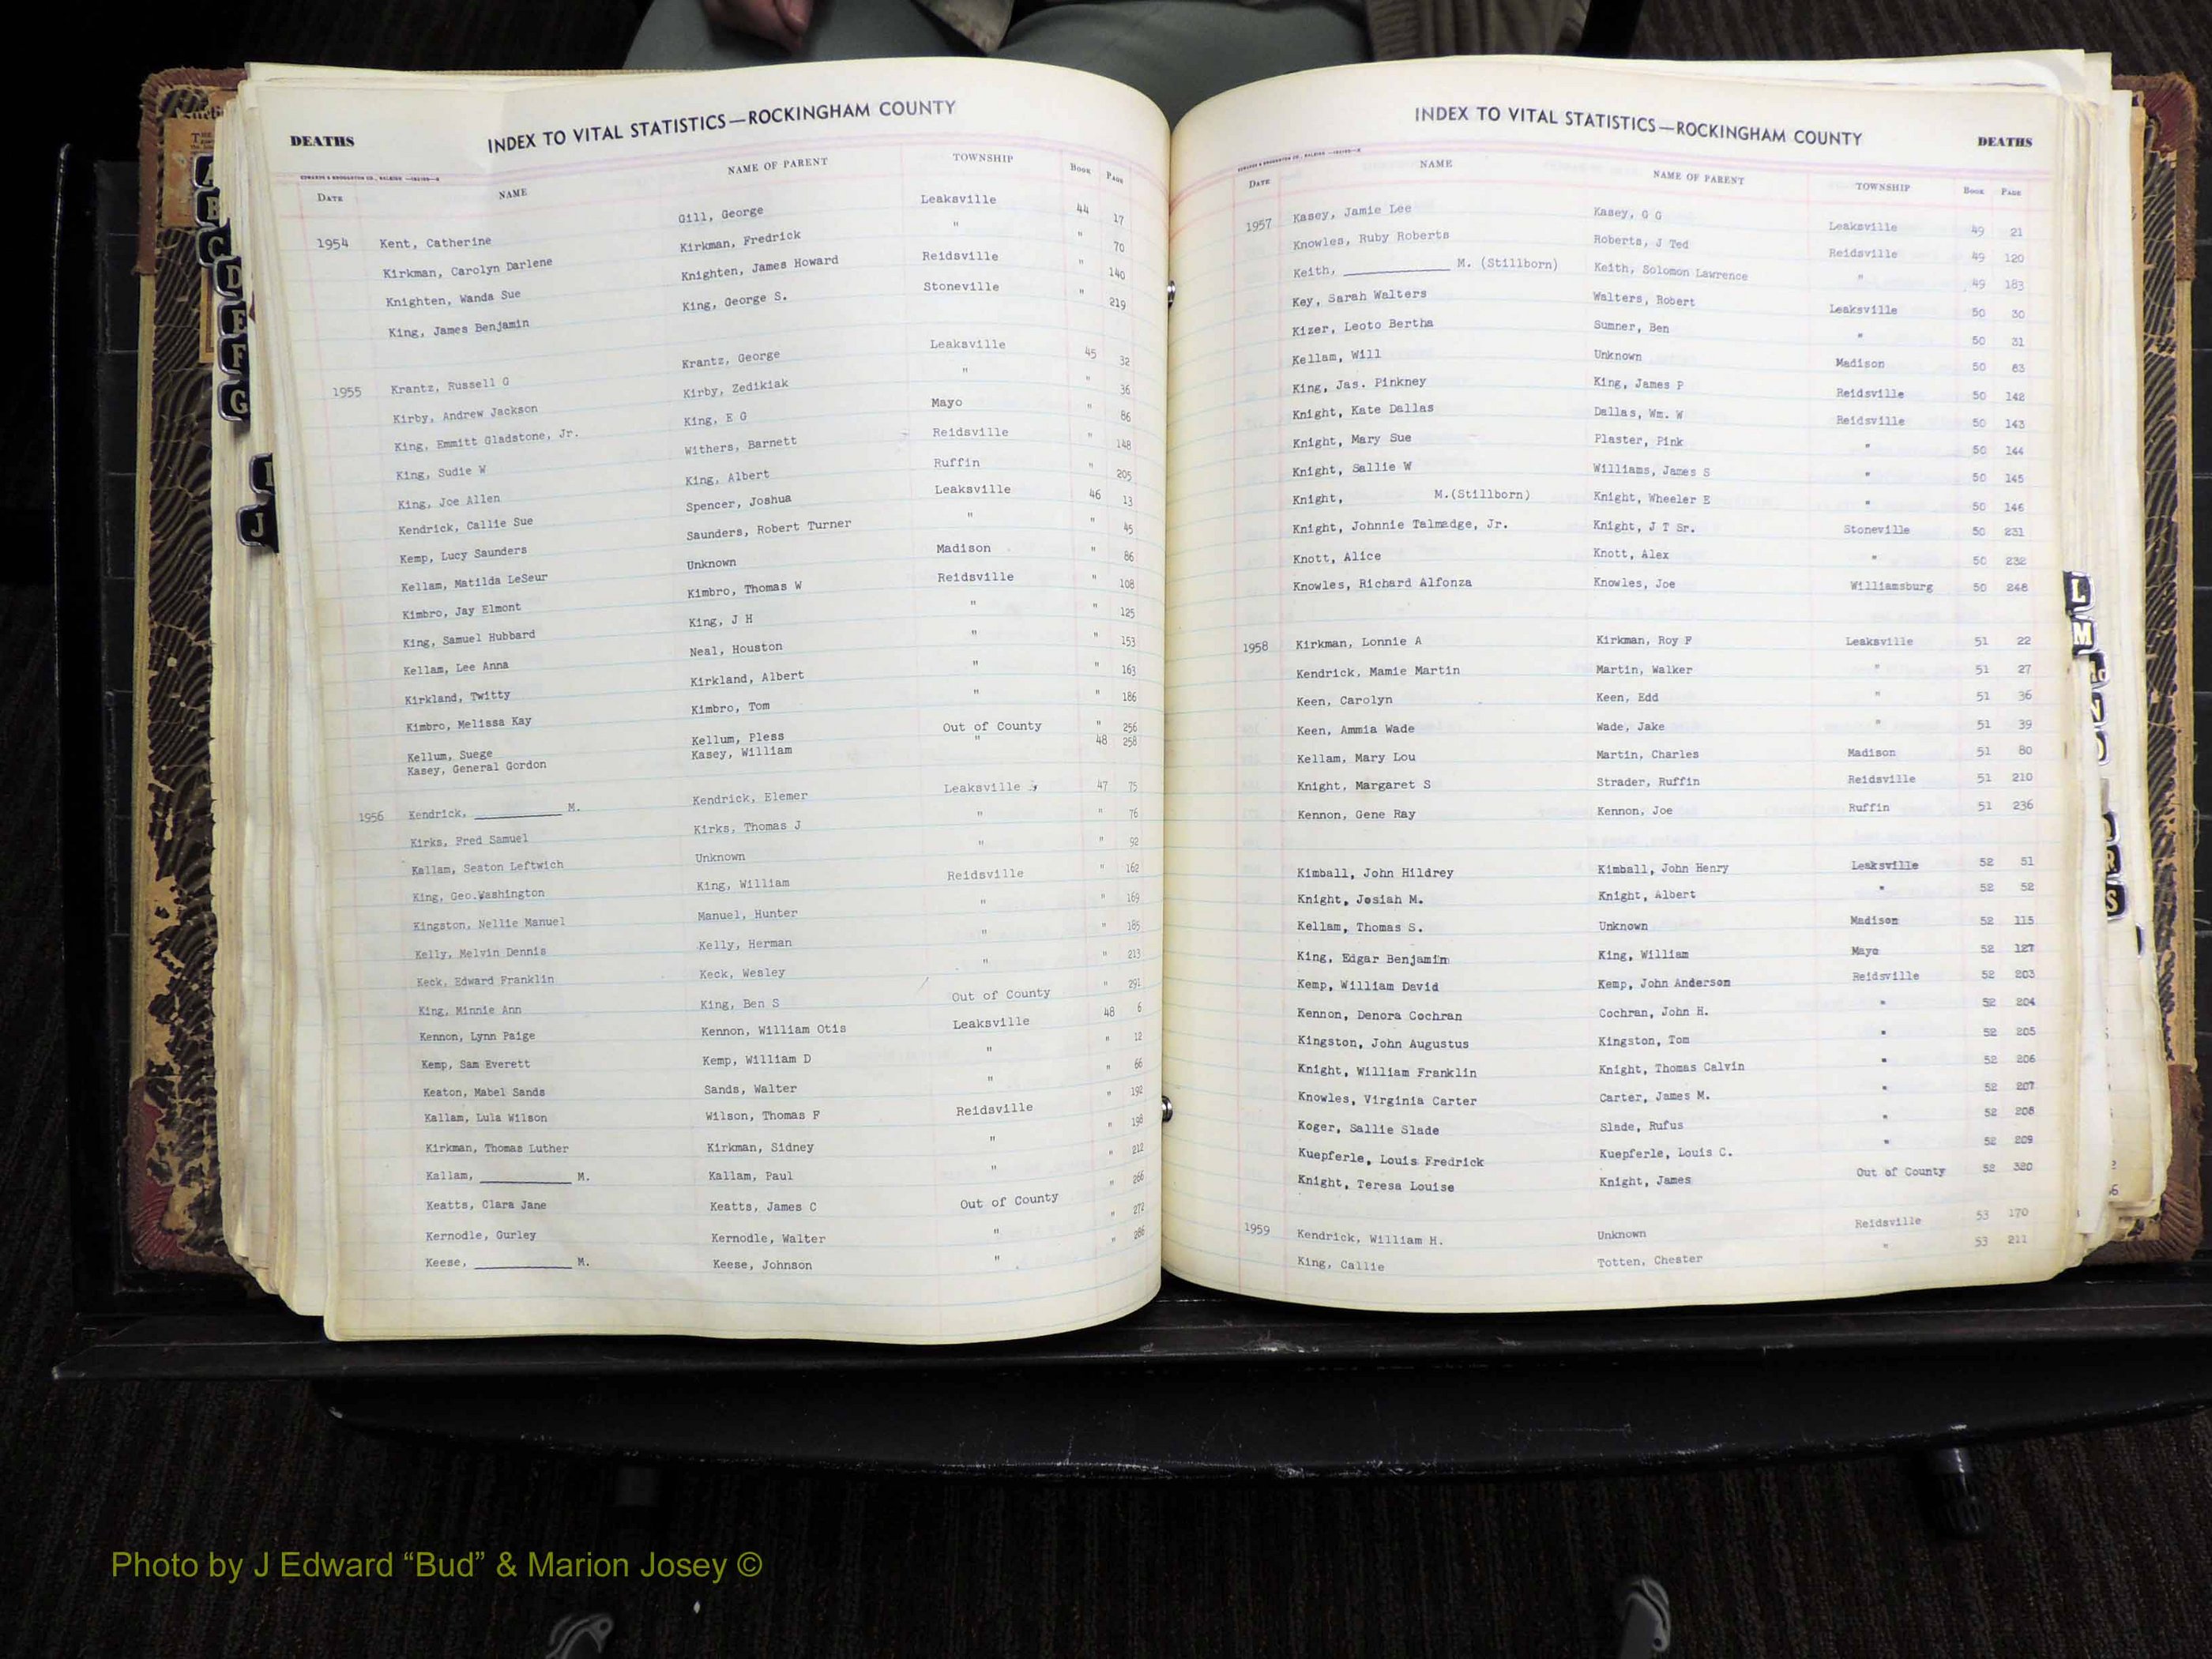 DEATHS INDEX TO VITAL STATISTICS—ROCKINGHAM COUNTY
DATE NAME NAME OF PARENT TOWNSHIP BOOK PAGE
1954 Kent, Catherine Gill, George Leaksville 44 17
Kirkman, Carolyn Darlene Kirkman, Fredrick " " 70
Knighten, Wanda Sue Knighten, James Howard Reidsville " 140
King, James Benjamin King, George S. Stoneville " 219
1955 Krantz, Russell G Krantz, George Leaksville 45 32
Kirby, Andrew Jackson Kirby, Zedikiak " " 36
King, Emmitt Gladstone, Jr. King, E G Mayo " 86
King, Sudie W Withers, Barnett Reidsville " 148
King, Joe Allen King, Albert Ruffin " 205
Kendrick, Callie Sue Spencer, Joshua Leaksville 46 13
Kemp, Lucy Saunders Saunders, Robert Turner " " 45
Kellam, Matilda LeSeur Unknown Madison " 86
Kimbro, Jay Elmont Kimbro, Thomas W Reidsville " 108
King, Samuel Hubbard King, J H " " 125
Kellam, Lee Anna Neal, Houston " " 153
Kirkland, Twitty Kirkland, Albert " " 163
Kimbro, Melissa Kay Kimbro, Tom " " 186
Kellum, Suege Kellum, Pless Out of County " 256
Kasey, General Gordon Kasey, William " 48 258
1956 Kendrick, ________ M. Kendrick, Elemer Leaksville 47 75
Kirks, Fred Samuel Kirks, Thomas J " " 76
Kallam, Seaton Leftwich Unknown " " 92
King, Geo.Washington King, William Reidsville " 162
Kingston, Nellie Manuel Manuel, Hunter " " 169
Kelly, Melvin Dennis Kelly, Herman " " 185
Keck, Edward Franklin Keck, Wesley " " 213
King, Minnie Ann King, Ben S Out of County " 291
Kennon, Lynn Paige Kennon, William Otis Leaksville 48 6
Kemp, Sam Everett Kemp, William D " " 12
Keaton, Mabel Sands Sands, Walter " " 66
Kallam, Lula Wilson Wilson, Thomas F Reidsville " 192
Kirkman, Thomas Luther Kirkman, Sidney " " 198
Kallam, ________ M. Kallam, Paul " " 212
Keatts, Clara Jane Keatts, James C Out of County " 266
Kernodle, Gurley Kernodle, Walter " " 272
Keese, ________ M. Keese, Johnson " " 286
INDEX TO VITAL STATISTICS—ROCKINGHAM COUNTY DEATHS
DATE NAME NAME OF PARENT TOWNSHIP BOOK PAGE
1957 Kasey, Jamie Lee Kasey, G G Leaksville 49 21
Knowles, Ruby Roberts Roberts, J Ted Reidsville 49 120
Keith, ________ M. (Stillborn) Keith, Solomon Lawrence " 49 183
Key, Sarah Walters Walters, Robert Leaksville 50 30
Kizer, Leoto Bertha Sumner, Ben " 50 31
Kellam, Will Unknown Madison 50 83
King, Jas. Pinkney King, James P Reidsville 50 142
Knight, Kate Dallas Dallas, Wm. W Reidsville 50 143
Knight, Mary Sue Plaster, Pink " 50 144
Knight, Sallie W Williams, James S " 50 145
Knight, M.(Stillborn) Knight, Wheeler E " 50 146
Knight, Johnnie Talmadge, Jr. Knight, J T Sr. Stoneville 50 231
Knott, Alice Knott, Alex " 50 232
Knowles, Richard Alfonza Knowles, Joe Williamsburg 50 248
1958 Kirkman, Lonnie A Kirkman, Roy F Leaksville 51 22
Kendrick, Mamie Martin Martin, Walker " 51 27
Keen, Carolyn Keen, Edd " 51 36
Keen, Ammia Wade Wade, Jake " 51 39
Kellam, Mary Lou Martin, Charles Madison 51 80
Knight, Margaret S Strader, Ruffin Reidsville 51 210
Kennon, Gene Ray Kennon, Joe Ruffin 51 236
Kimball, John Hildrey Kimball, John Henry Leaksville 52 51
Knight, Josiah M. Knight, Albert " 52 52
Kellam, Thomas S. Unknown Madison 52 115
King, Edgar Benjamin King, William Mayo 52 127
Kemp, William David Kemp, John Anderson Reidsville 52 203
Kennon, Denora Cochran Cochran, John H. " 52 204
Kingston, John Augustus Kingston, Tom " 52 205
Knight, William Franklin Knight, Thomas Calvin " 52 206
Knowles, Virginia Carter Carter, James M. " 52 207
Koger, Sallie Slade Slade, Rufus " 52 208
Kuepferle, Louis Fredrick Kuepferle, Louis C. " 52 209
Knight, Teresa Louise Knight, James Out of County 52 320
1959 Kendrick, William H. Unknown Reidsville 53 170
King, Callie Totten, Chester " 53 211
B
C
D
E
F
G
J
L
M
R
S
Photo by J Edward “Bud” & Marion Josey ©